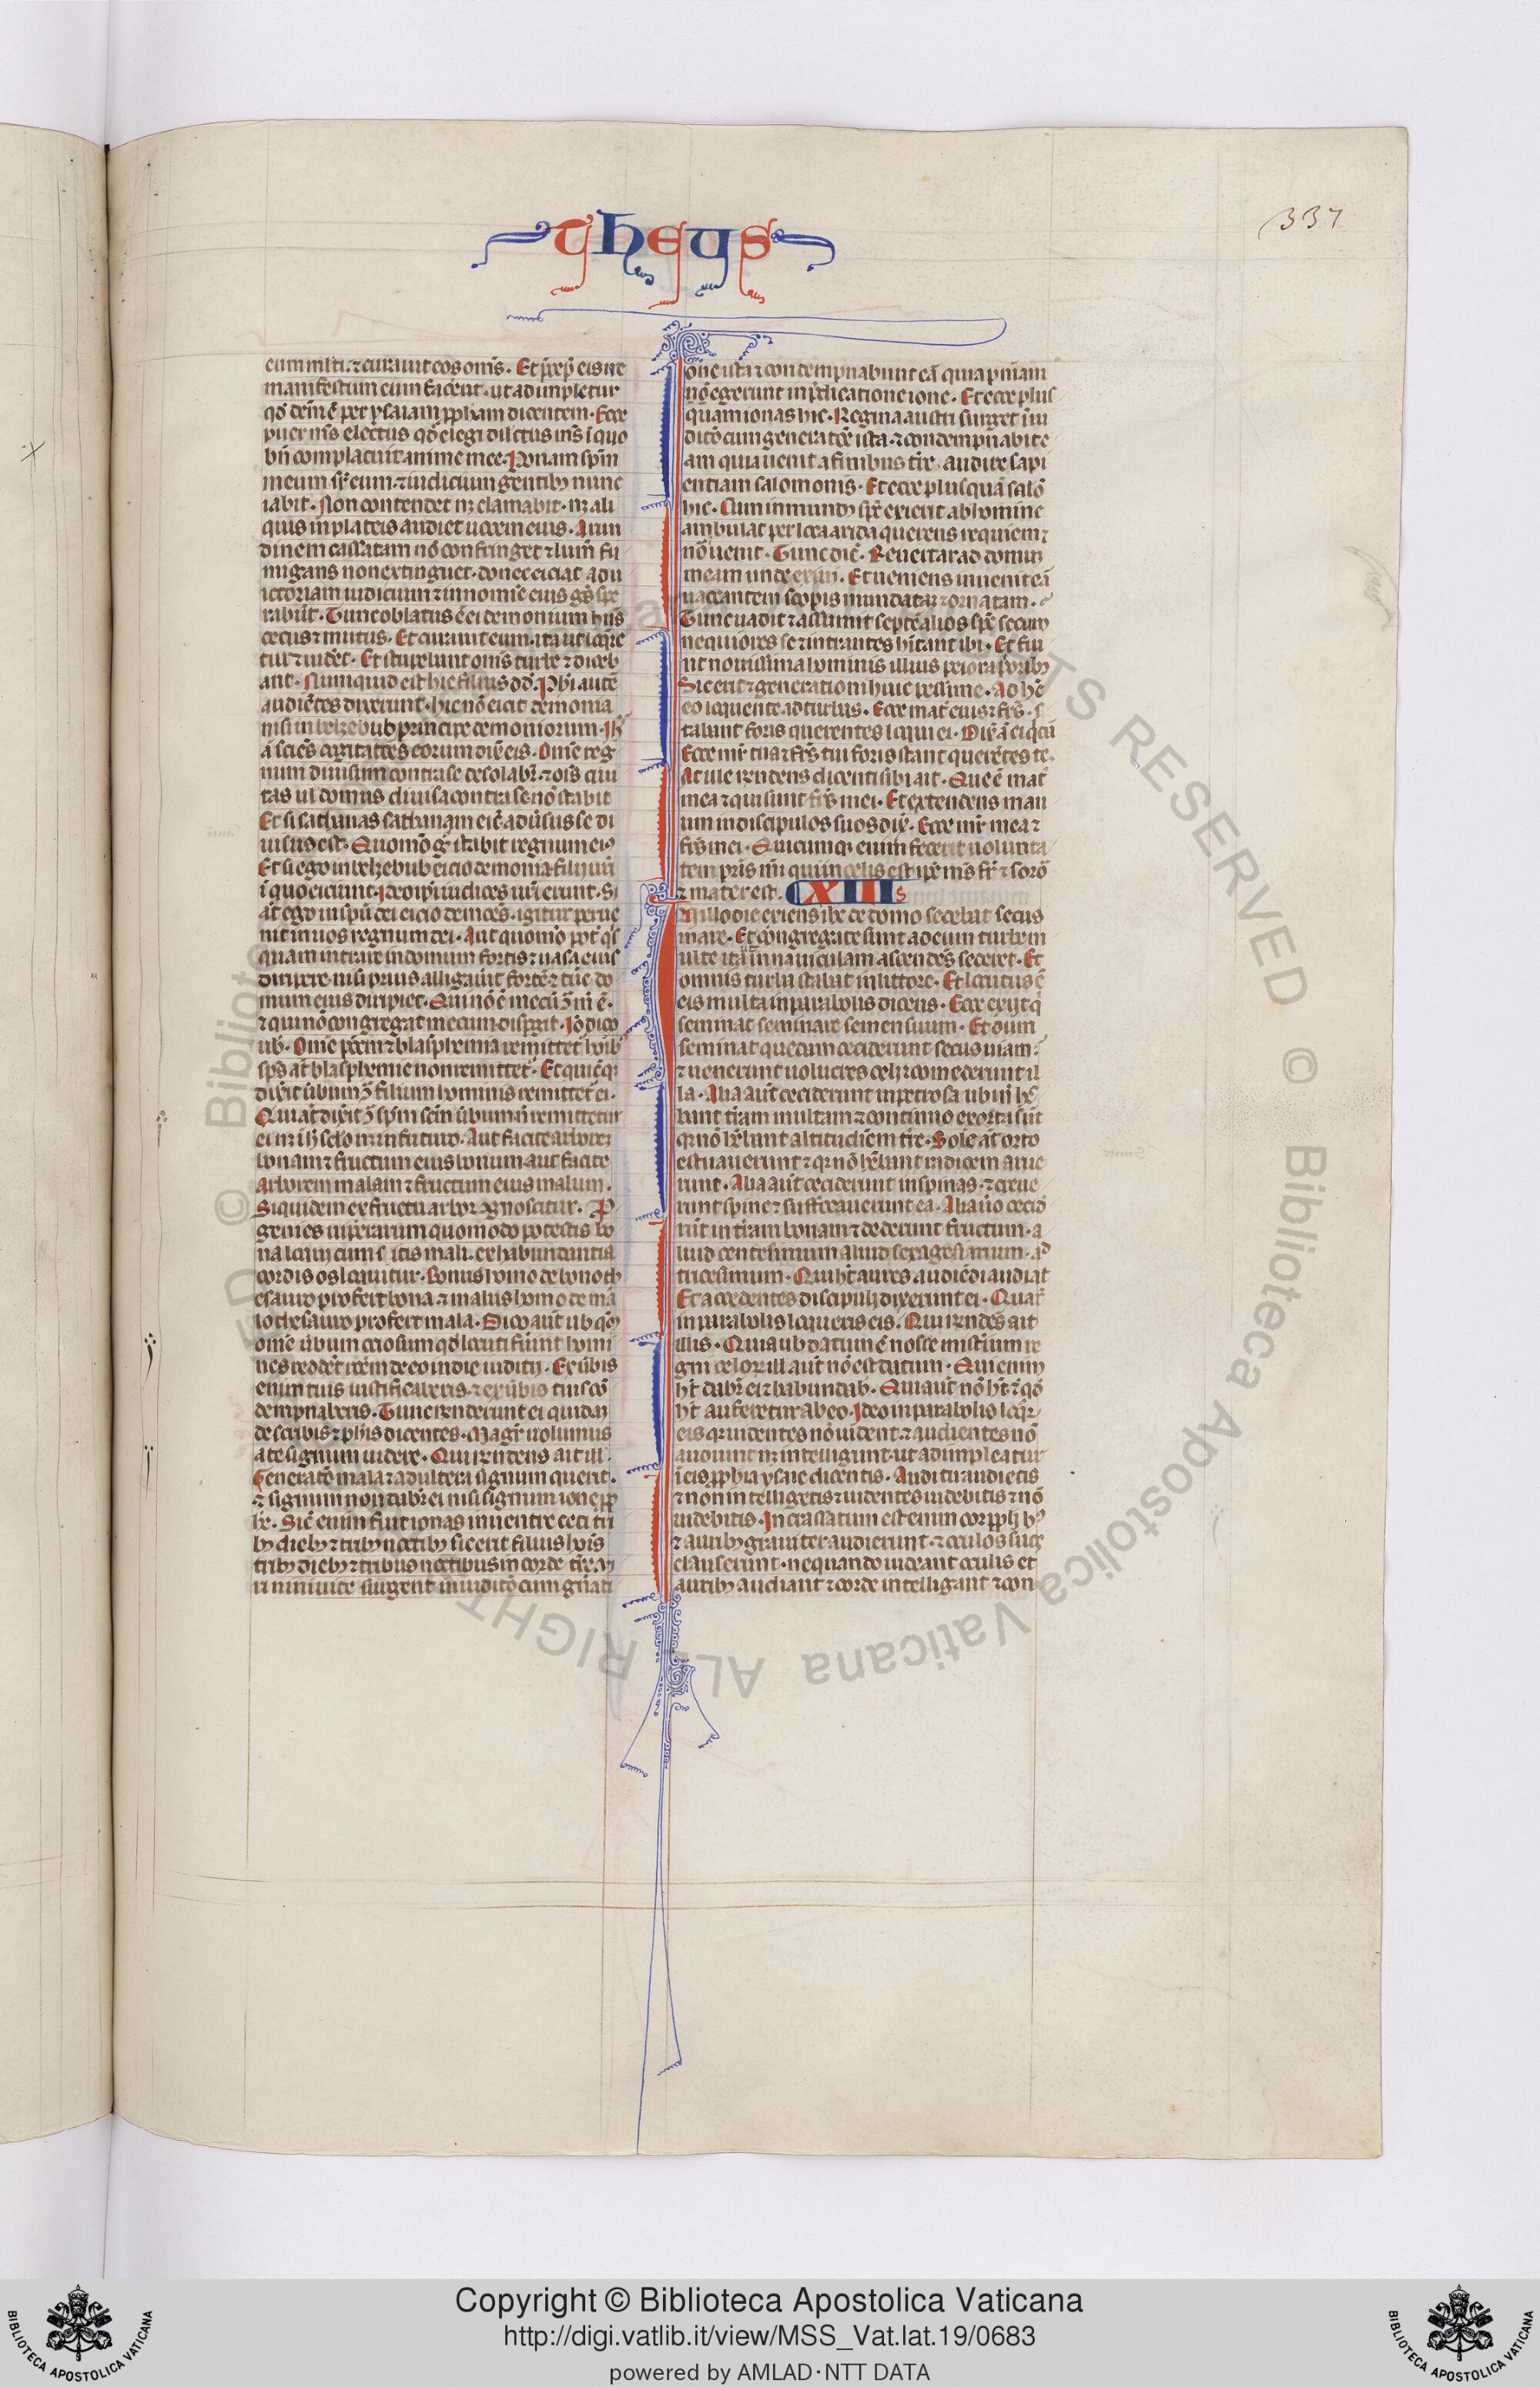 theus
337
eum mlti. ⁊ curauit eos om̄s. Et p̄cep̄ eis ne
manifestum eum facēnt. ut adimpletur
qd̄ dc̄m ē per ysaiam ꝓpham dicentem. Ecce
puer m̄s electus qd̄ elegi dilectus m̄s ī quo
bn̄ complacuit anime mee. Ponam spm̄
meum sr̄ eum. ⁊ iudicium gentibꝫ nunc
iabit. Non contendet nꝫ clamabit. nꝫ ali
quis in plateis audiet uocem eius. Arun
dinem cassatam nō confringet ⁊ linū fu
migans non extinguet. donec eiciat ad ui
ctoriam iudicium ⁊ in nomīe eius gēs spe
rabūt. Tunc oblatus ē ei demonium hn̄s
cecus ⁊ mutus. Et curauit eum. ita ut loq̄re
tur ⁊ uidēt. Et stupebant om̄s turbe ⁊ diceb
ant. Numquid est hic filius dd̄. Phi autē
audiētes dixerunt. hic nō eicit demonia
nisi in belzebub principe demoniorum. Ih̄
ā sciēs cogitatiōes eorum dix̄ eis. Omē reg
num diuisum contra se desolabr̄. ⁊ oīs ciui
tas ul domus diuisa contra se nō stabit
Et si sathanas sathanam eicit aduersus se di
uisus est. Quomō gͦ stabit regnum eiꝰ
Et si ego in belzebub eicio demonia filii ur̄i
ī quo eiciunt. Ideo ipī iudices ur̄i erunt. Si
at̄ ego in spū dei eicio demōes. igitur perue
nit in uos regnum dei. Aut quomō pot̄ qͥs
quam intrare in domum fortis ⁊ uasa eius
diripere. nisi prius alligauit fortē ⁊ tūc do
mum eius diripiet. Qui nō ē mecū ɔͣ m̄ ē.
⁊ qui nō congregat mecum. dispgit. Iō dico
ub̄. Omē pctm̄ ⁊ blasphemia remittet hoībꝰ
sp̄s at̄ blasphemie non remittet. Et quicūqꝫ
dixit ūbum ɔͣ filium hominis remittet ei.
Qui at̄ dixit ɔͣ spm̄ scm̄ ūbum n̄ remittetur
ei nꝫ ī h̄ sclo nꝫ in futuro. Aut facite arborem
bonam ⁊ fructum eius bonum. aut facite
arborem malam ⁊ fructum eius malum.
Siquidem ex fructu arbor agnoscitur. P
genies uiperarum quomodo potestis bo
na loqui cum sitis mali. ex habundantia
cordis os loquitur. Bonus homo de bono th
esauro profert bona. ⁊ malus homo de ma
lo thesauro profert mala. Dico aut̄ ub qm̄
omē ūbum ociosum qd̄ locuti fuīnt homi
nes reddēt rōem de eo in die iudicii. Ex ūbis
enim tuis iustificaberis. ⁊ ex ūbis tuis cō
dempnaberis. Tunc rn̄derunt ei quidaꝫ
de scribis ⁊ ph̄is dicentes. Magr̄ uolumus
a te signum uidere. Qui rn̄dens ait ill.
Generatō mala ⁊ adultera signum querit.
⁊ signum non dabr̄ ei nisi signum ione ꝓp
he. Sic̄ enim fuit ionas in uentre ceti tri
bꝫ diebꝫ ⁊ tribꝫ noctibꝫ sic erit filius hoīs
tribꝫ diebꝫ ⁊ tribus noctibus in corde tr̄e. Vi
ri niniuite surgent in iudicō cum gn̄ati
one ista ⁊ contempnabunt eā quia pn̄iam
nō egerunt in p̄dicatione ione. Et ecce plus
quam ionas hic. Regina austri surget ī iu
ditō cum generatōe ista. ⁊ condempnabit e
am quia uenit a finibus tr̄e. audire sapi
entiam salomonis. Et ecce plusquā salō
hic. Cum inmundꝰ sp̄s exierit ab homine
ambulat per loca arida querens requiem ⁊
nō uenit. Tunc dic̄. Reuertar ad domū
meam unde exiui. Et ueniens inuenit eā
uacantem scopis mundataꝫ ⁊ ornatam.
Tunc uadit ⁊ assumit septē alios sp̄s secum
nequiores se ⁊ intrantes hītant ibi. Et fiu
nt nouissima hominis illius peiora p̄oribꝫ
Sic erit ⁊ generationi huic pessime. Adhc̄
eo loquente ad turbas. Ecce mat̄ eius ⁊ fr̄s. s
tabant foris querentes loqui ei. Dix̄ ā ei qͥdā
Ecce mr̄ tua ⁊ fr̄s tui foris stant querētes te.
At ille rn̄dens dicenti sibi ait. Que ē mat̄
mea ⁊ qui sunt fr̄s mei. Et extendens man
um in discipulos suos dix̄. Ecce mr̄ mea ⁊
fr̄s mei. Quicumqꝫ enim fecerit uolunta
tem pr̄is mī qui in celis est ip̄e m̄s fr̄ ⁊ soror̄
⁊ mater est. XIII
In illo die exiens ihc̄ de domo sedebat secus
mare. Et congregate sunt ad eum turbe m
ulte ita ut in nauiculam ascendēs sederet. Et
omnis turba stabat in littore. Et locutus ē
eis multa in parabolis dicens. Ecce exiit qͥ
seminat seminare semen suum. Et dum
seminat quedam ceciderunt secus uiam.
⁊ uenerunt uolucres celi ⁊ comederunt il
la. Alia aut̄ ceciderunt in petrosa ubi n̄ hē
bant tr̄am multam ⁊ continuo exorta sūt
qꝛ nō hēbant altitudiem tr̄e. Sole at̄ orto
estuauerunt ⁊ qꝛ nō hēbant radicem arue
runt. Alia aut̄ ceciderunt in spinas. ⁊ creue
runt spine ⁊ suffocauerunt ea. Alia uō cecid̄
rūt in tr̄am bonam ⁊ dederunt fructum. a
liud centesimum aliud sexagesimum. ad
tricesimum. Qui ht̄ aures audiēdi audiat
Et accedentes discipuli dixerunt ei. Quar̄
in parabolis loqueris eis. Qui rn̄dēs ait
illis. Quia ub datum ē nosse misterium re
gni celoꝝ ill aut̄ nō est datum. Qui enim
ht̄ dabr̄ ei ⁊ habundab. Qui aut̄ nō ht̄ ⁊ qd̄
ht̄ auferetur ab eo. Ideo in parabolis loqr̄
eis qꝛ uidentes nō uident. ⁊ audientes nō
audiunt nꝫ intelligunt. ut adimpleatur
ī eis ꝓphia ysaie dicentis. Auditu audietis
⁊ non intelligetis ⁊ uidentes uidebitis ⁊ nō
uidebitis. Incrassatum est enim cor ppli hꝰ
⁊ auribꝫ grauiter audierunt. ⁊ oculos suos
clauserunt. nequando uideant oculis et
auribꝫ audiant ⁊ corde intelligant ⁊ con
Copyright © Biblioteca Apostolica Vaticana
http://digi.vatlib.it/view/MSS_Vat.lat.19/0683
powered by AMLAD·NTT DATA
BIBLIOTECA APOSTOLICA VATICANA
BIBLIOTECA APOSTOLICA VATICANA